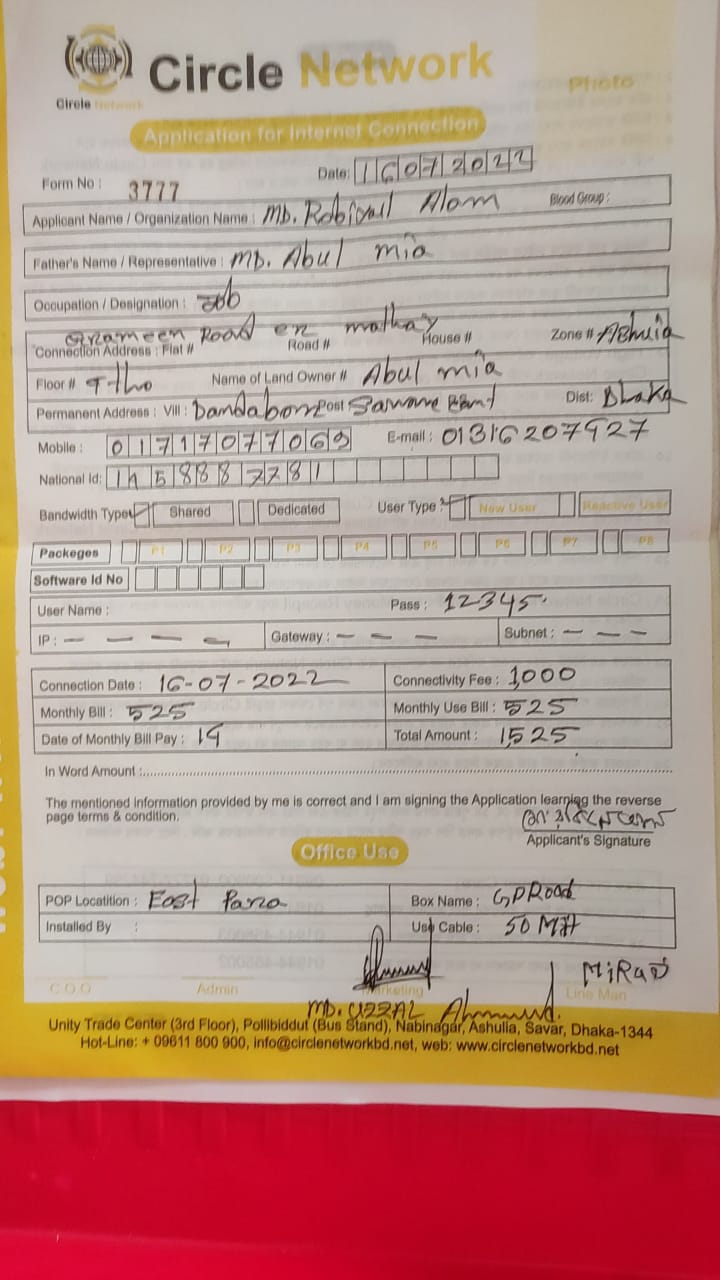 Circle Network
Circle Network
Photo
Application for Internet Connection
Form No : 3777
Date: 16072022
Applicant Name / Organization Name : MD. Alam Blood Group :
Father's Name / Representative : MD. Abul mia
Occupation / Designation : Job
Grameen Road
Connection Address : Flat # Road # House # Zone # Ashulia
Floor # Name of Land Owner # Abul mia
Permanent Address : Vill : Post Dist: Dhaka
Mobile : 01717077069 E-mail : 01316207927
National Id:
Bandwidth Type Shared Dedicated User Type : New User Reactive User
Packeges P1 P2 P3 P4 P5 P6 P7 P8
Software Id No
User Name : Pass : 12345.
IP : — — — — Gateway : — — — Subnet : — — —
Connection Date : 16-07-2022 Connectivity Fee : 1,000
Monthly Bill : 525 Monthly Use Bill : 525
Date of Monthly Bill Pay : 19 Total Amount : 1,525
In Word Amount :
The mentioned information provided by me is correct and I am signing the Application learning the reverse
page terms & condition.
Applicant's Signature
Office Use
POP Locatition : East Para Box Name : GP Road
Installed By : Use Cable : 50 MT
MiRaD
C.O.O Admin Marketing Line Man
MD. UZZAL Ahmmed.
Unity Trade Center (3rd Floor), Pollibiddut (Bus Stand), Nabinagar, Ashulia, Savar, Dhaka-1344
Hot-Line: + 09611 800 900, info@circlenetworkbd.net, web: www.circlenetworkbd.net